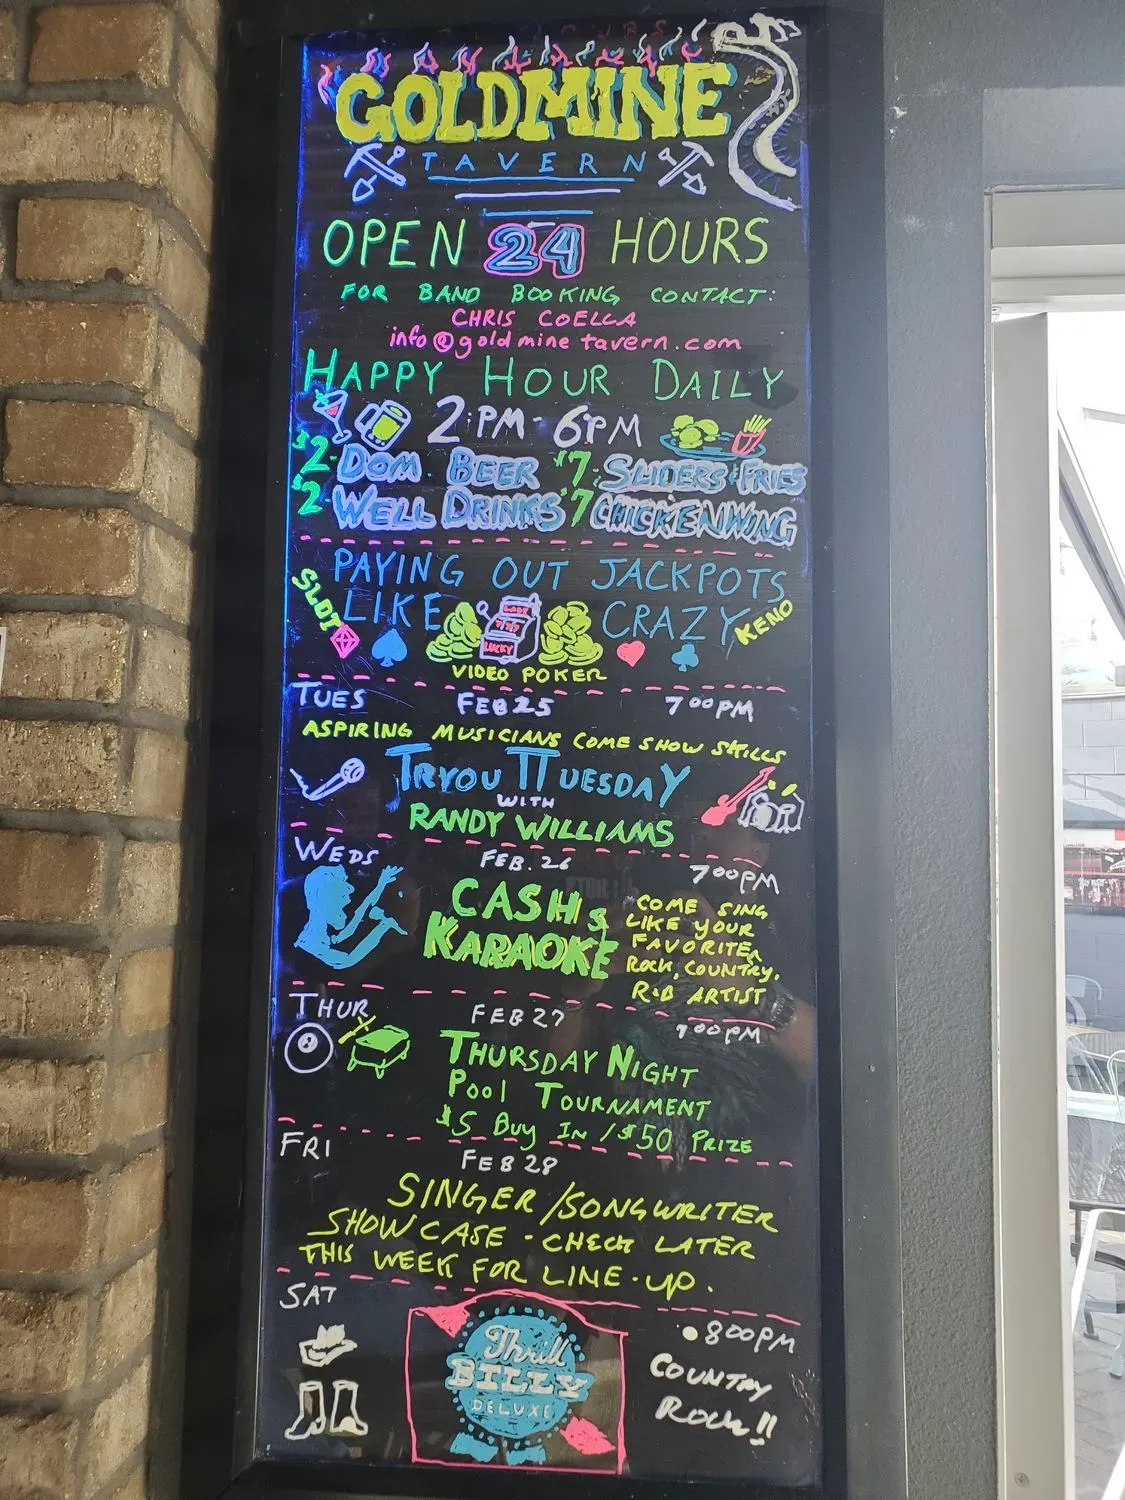 GOLDMINE
TAVERN
OPEN 24 HOURS
FOR BAND BOOKING CONTACT:
CHRIS COELLA
info@goldminetavern.com
HAPPY HOUR DAILY
2:PM-6PM
$2 DOM BEER $7 SLIDERS & FRIES
$2 WELL DRINKS $7 CHICKEN WING
PAYING OUT JACKPOTS
SLOT LIKE CRAZY KENO
LUCKY
777
LUCKY
VIDEO POKER
TUES FEB 25 700PM
ASPIRING MUSICIANS COME SHOW SKILLS
TRYOUTTUESDAY
WITH
RANDY WILLIAMS
WEDS FEB. 26 700PM
CASH
KARAOKE
COME SING
LIKE YOUR
FAVORITE
ROCK, COUNTRY,
R&B ARTIST
THUR FEB 27 900PM
8
THURSDAY NIGHT
POOL TOURNAMENT
$5 BUY IN / $50 PRIZE
FRI FEB 28
SINGER/SONGWRITER
SHOWCASE - CHECK LATER
THIS WEEK FOR LINE-UP.
SAT 800PM
Thrill
BILLY
DELUXE
COUNTRY
ROCK!!